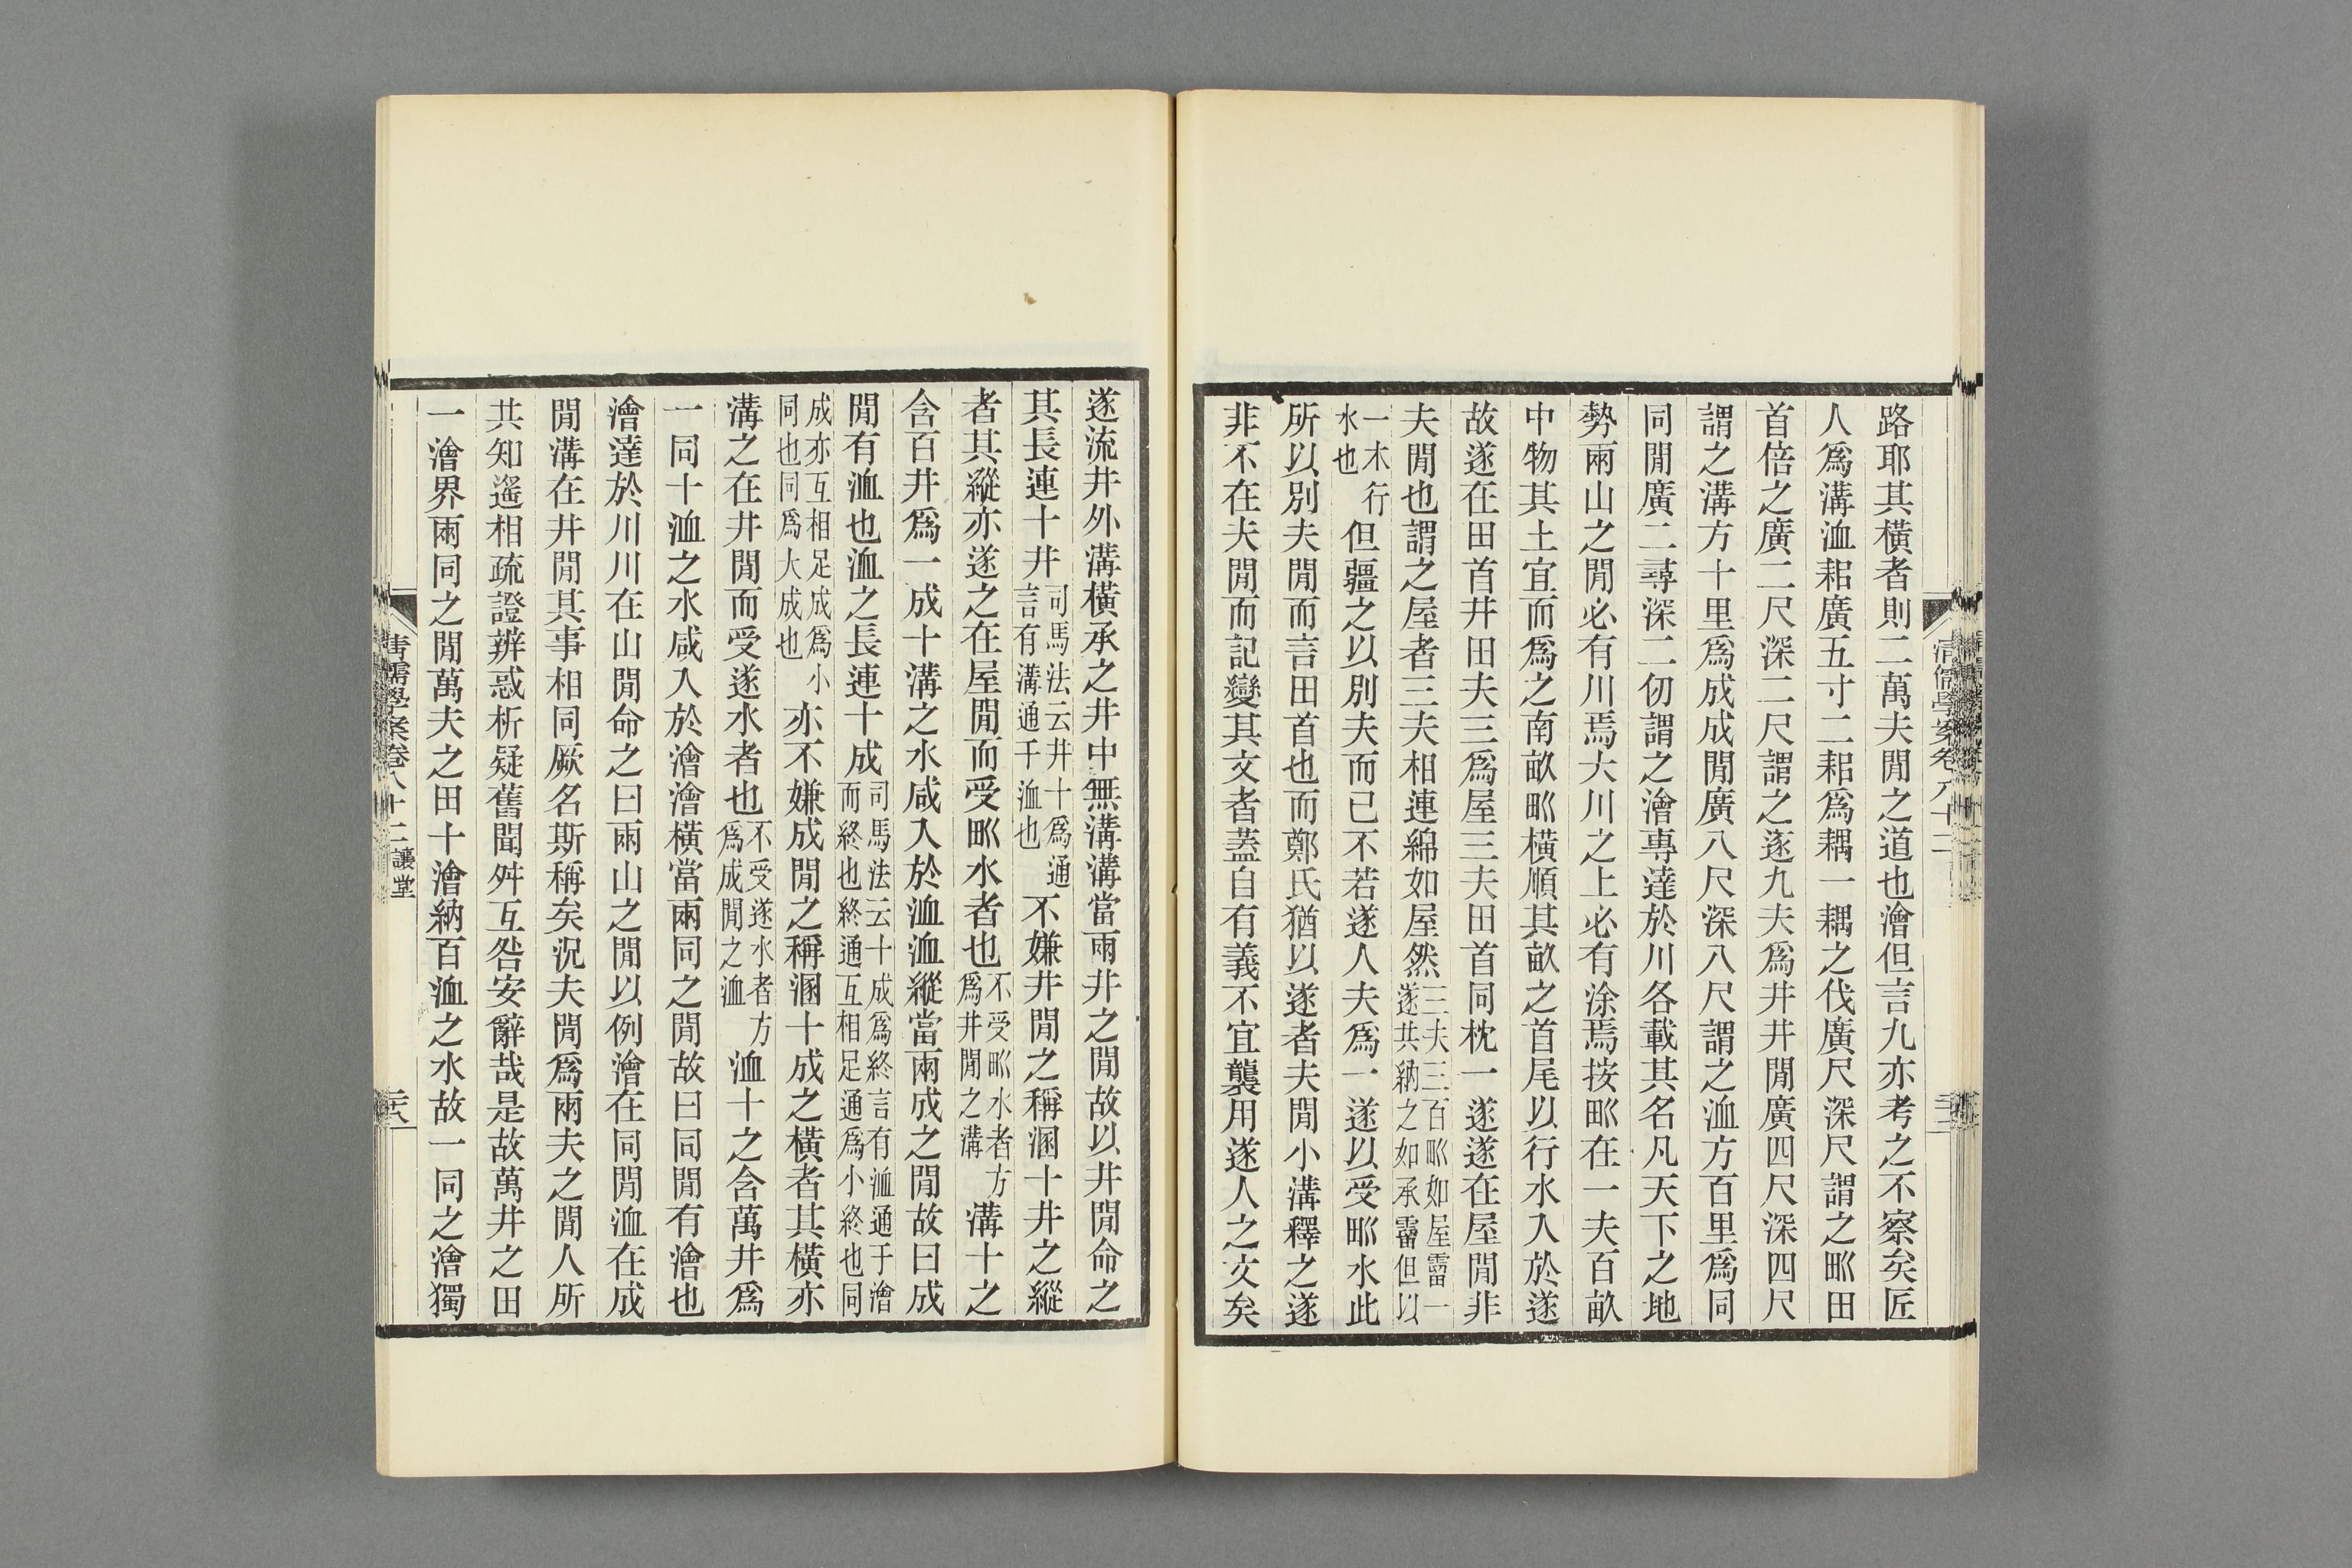 路耶其橫者則二萬夫閒之道也澮但言九亦考之不察矣匠
人爲溝洫耜廣五寸二耜爲耦一耦之伐廣尺深尺謂之甽田
首倍之廣二尺深二尺謂之遂九夫爲井井閒廣四尺深四尺
謂之溝方十里爲成成閒廣八尺深八尺謂之洫方百里爲同
同閒廣二尋深二仞謂之澮專達於川各載其名凡天下之地
勢兩山之閒必有川焉大川之上必有涂焉按甽在一夫百畝
中物其土宜而爲之南畝甽橫順其畝之首尾以行水入於遂
故遂在田首井田夫三爲屋三夫田首同枕一遂遂在屋閒非
夫閒也謂之屋者三夫相連綿如屋然三夫三百甽如屋霤一
遂共納之如承霤但以
一木行
水也
但疆之以別夫而已不若遂人夫爲一遂以受甽水此
所以別夫閒而言田首也而鄭氏猶以遂者夫閒小溝釋之遂
非不在夫閒而記變其文者蓋自有義不宜襲用遂人之文矣
清儒學案卷八十二
遂流井外溝橫承之井中無溝溝當兩井之閒故以井閒命之
其長連十井司馬法云井十爲通
言有溝通于洫也
不嫌井閒之稱溷十井之縱
者其縱亦遂之在屋閒而受甽水者也不受甽水者方
爲井閒之溝
溝十之
含百井爲一成十溝之水咸入於洫洫縱當兩成之閒故曰成
閒有洫也洫之長連十成司馬法云十成爲終言有洫通于澮
而終也終通互相足通爲小終也同
成亦互相足成爲小
同也同爲大成也
亦不嫌成閒之稱溷十成之橫者其橫亦
溝之在井閒而受遂水者也不受遂水者方
爲成閒之洫
洫十之含萬井爲
一同十洫之水咸入於澮澮橫當兩同之閒故曰同閒有澮也
澮達於川川在山閒命之曰兩山之閒以例澮在同閒洫在成
閒溝在井閒其事相同厥名斯稱矣況夫閒爲兩夫之閒人所
共知遙相疏證辨惑析疑舊聞舛互咎安辭哉是故萬井之田
一澮界兩同之閒萬夫之田十澮納百洫之水故一同之澮獨
清儒學案卷八十二